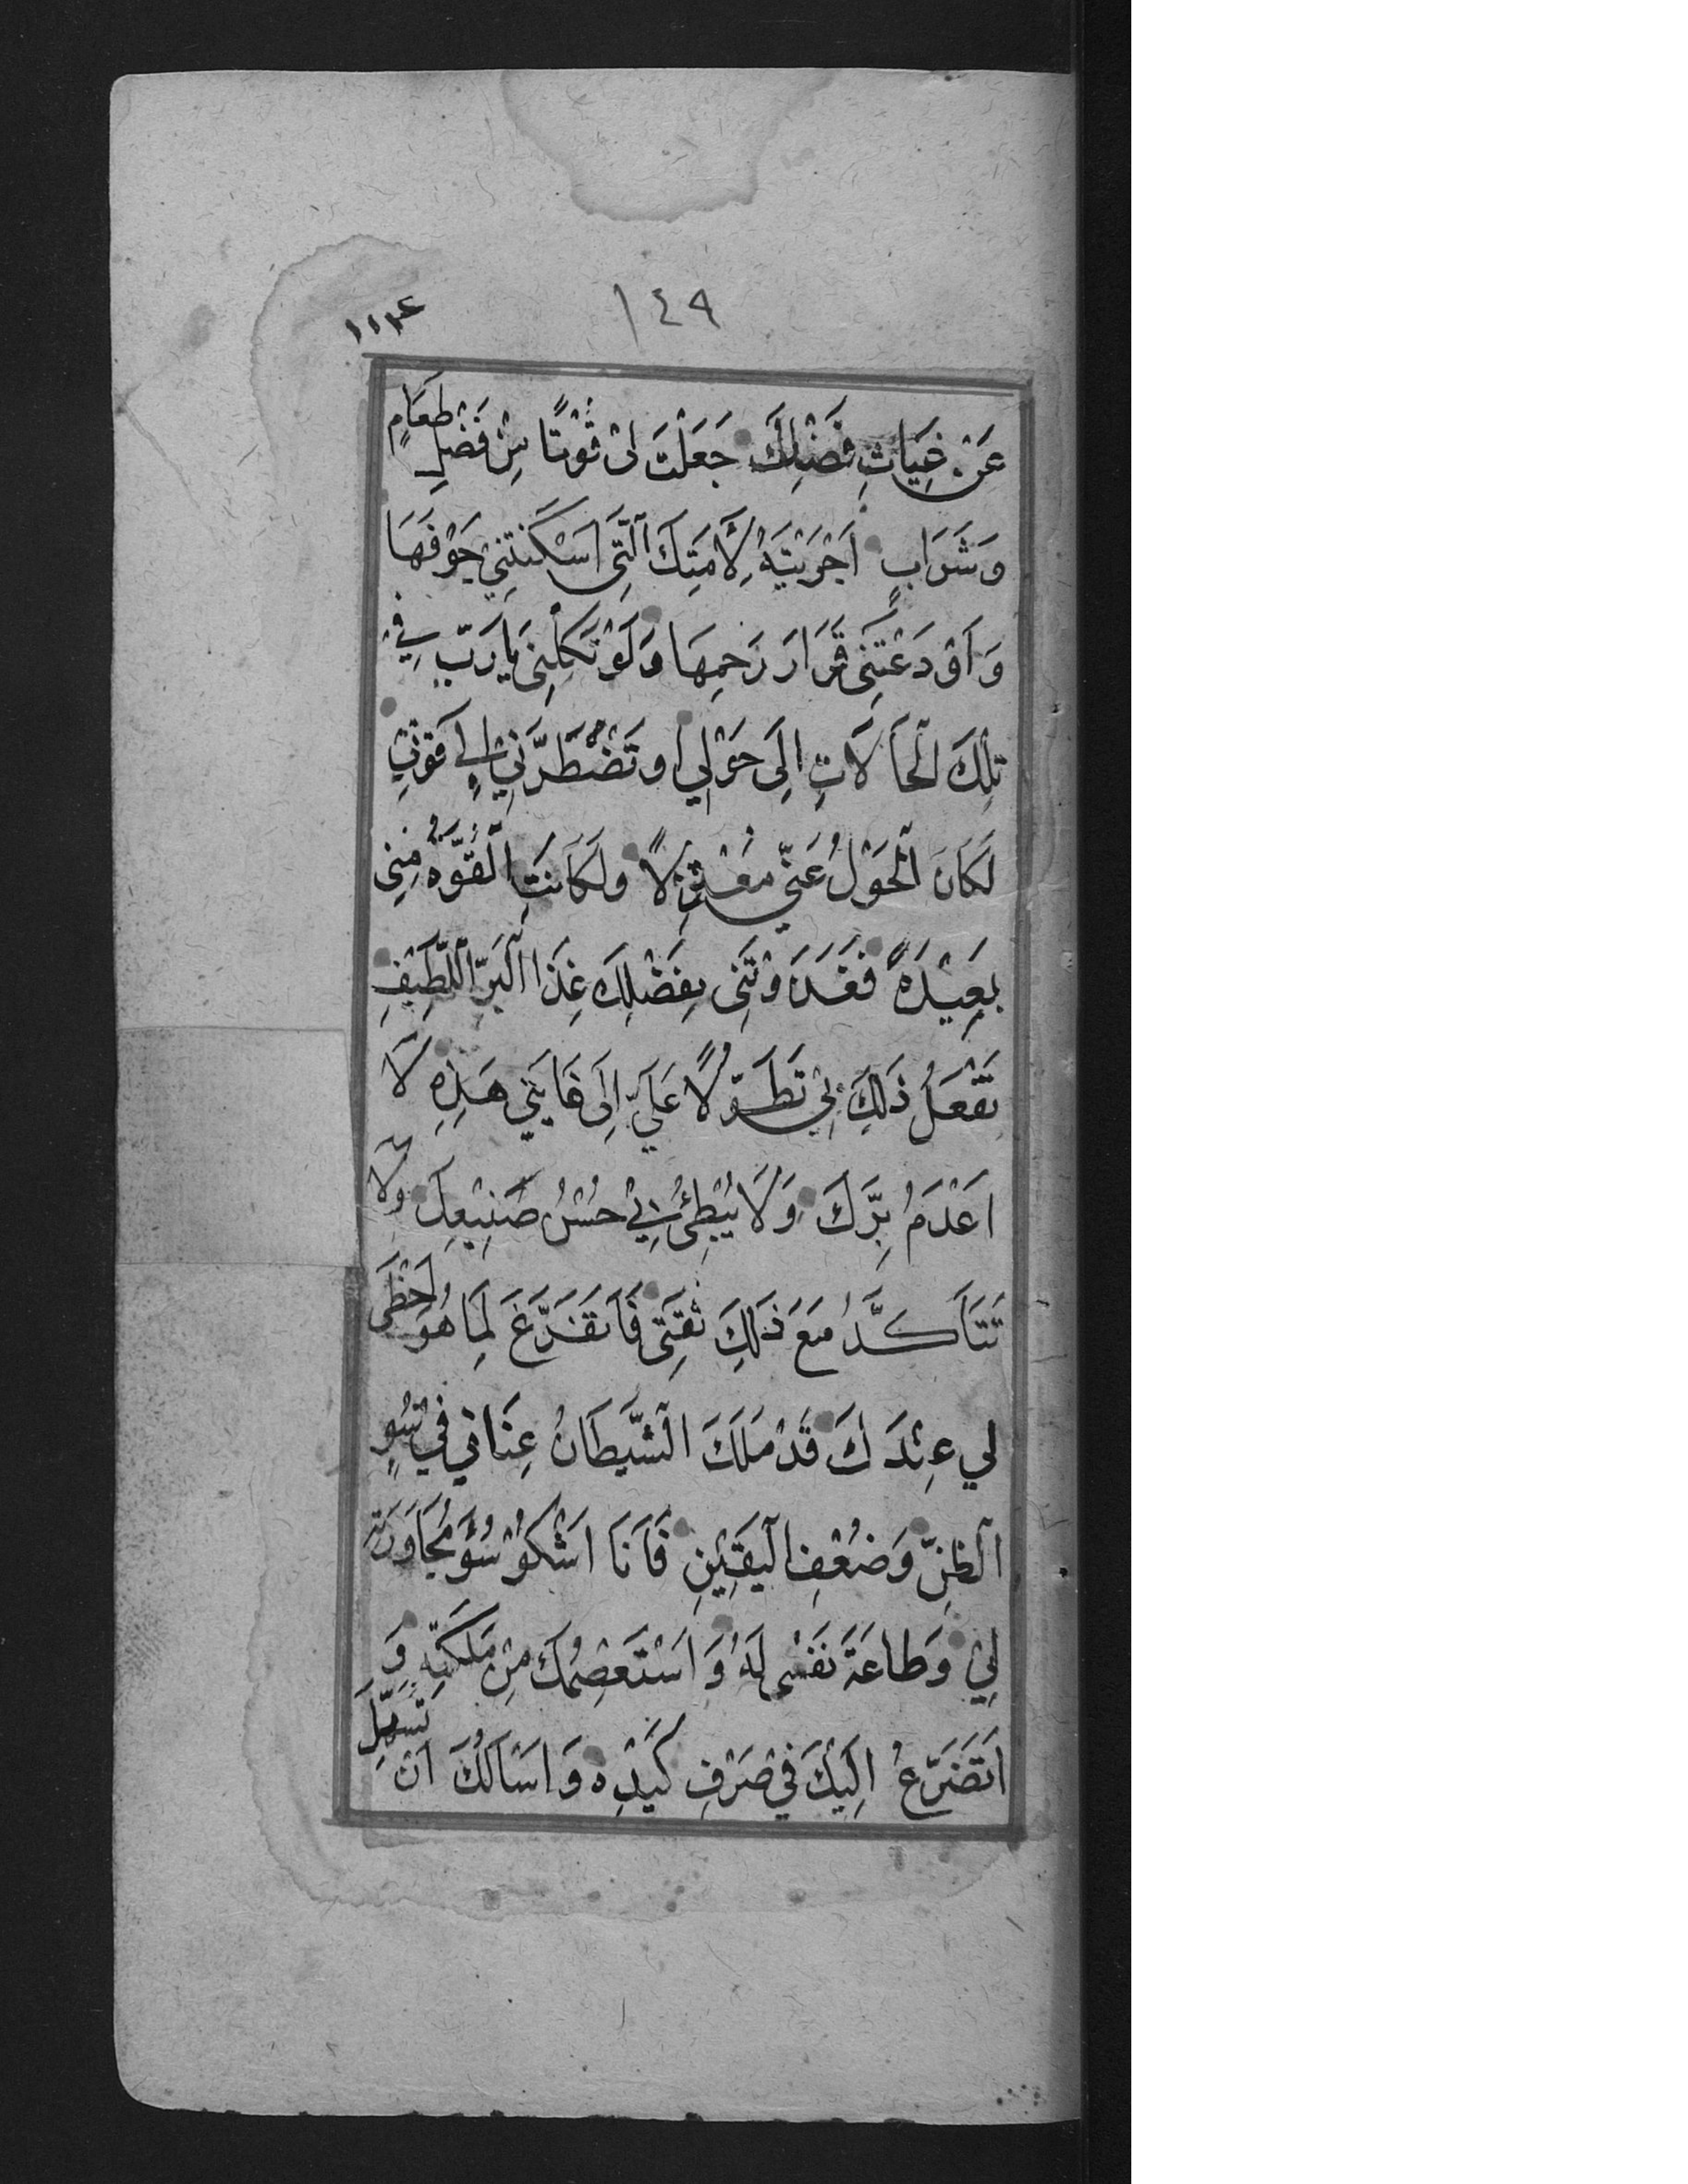 ١٤٩
١١٣٤
عَنْ غِيَاثِ فَضْلِكَ جَعَلْتَ لِى قُوْتًا مِنْ فَضْلِ طَعَامٍ
وَشَرَابٍ اَجْرَيْتَهُ لِاَمَتِكَ الَّتِى اَسْكَنْتَنِيْ جَوْفَهَا
وَاَوْدَعْتَنِى قَرَارَ رَحِمِهَا وَلَوْ تَكِلْنِى يَا رَبِّ فِيْ
تِلْكَ الْحَالَاتِ اِلَى حَوْلِي اَوْ تَضْطَرُّنِيْ اِلٰى قُوَّتِيْ
لَكَانَ الْحَوْلُ عَنِّي مُعْتَزِلًا وَلَكَانَتِ الْقُوَّةُ مِنِّى
بَعِيْدَةً فَغَذَوْتَنِى بِفَضْلِكَ غِذَا الْبَرِّ اللَّطِيْفِ
تَفْعَلُ ذَلِكَ بِيْ تَطَوُّلًا عَلَيَّ اِلَى غَايَتِي هَذِهِ لَا
اَعْدَمُ بِرَّكَ وَلَا يُبْطِئُ بِيْ حُسْنُ صَنِيْعِكَ وَلَا
تَتَأَكَّدُ مَعَ ذَلِكَ ثِقَتِى فَاَتَفَرَّغَ لِمَا هُوَ اَحْظَى
لِي عِنْدَكَ قَدْ مَلَكَ الشَّيْطَانُ عِنَانِي فِي سُوءِ
الظَّنِّ وَضُعْفِ الْيَقِيْنِ فَاَنَا اَشْكُوْ سُوْءَ مُجَاوَرَتِهِ
لِيْ وَطَاعَةَ نَفْسِى لَهُ وَاَسْتَعْصِمُكَ مِنْ مَلَكَتِهِ وَ
اَتَضَرَّعُ اِلَيْكَ فِيْ صَرْفِ كَيْدِهِ وَاَسْاَلُكَ اَنْ تُسَهِّلَ